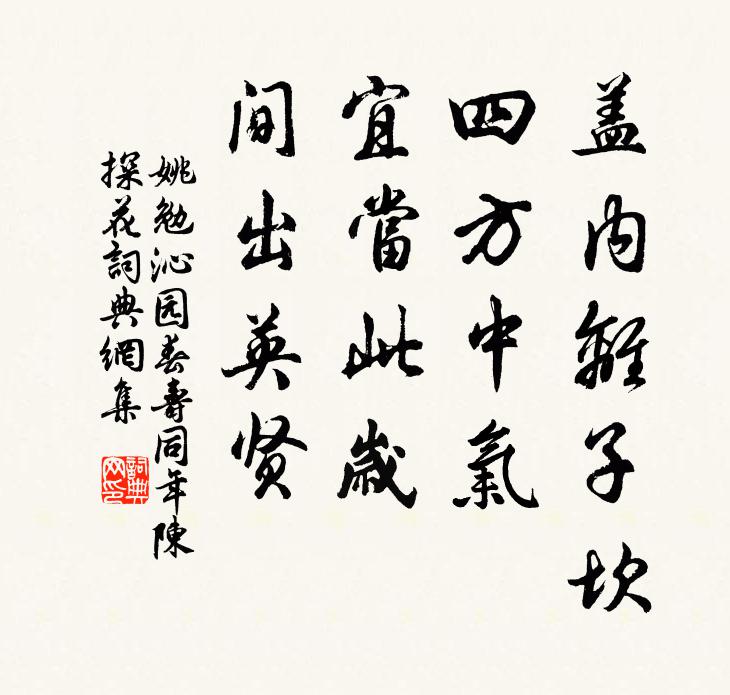 盖内離子坎
四方中氣
宜當此歲
间出英贤
姚勉沁园春壽同年陳
探花詞典網集
詞典网印